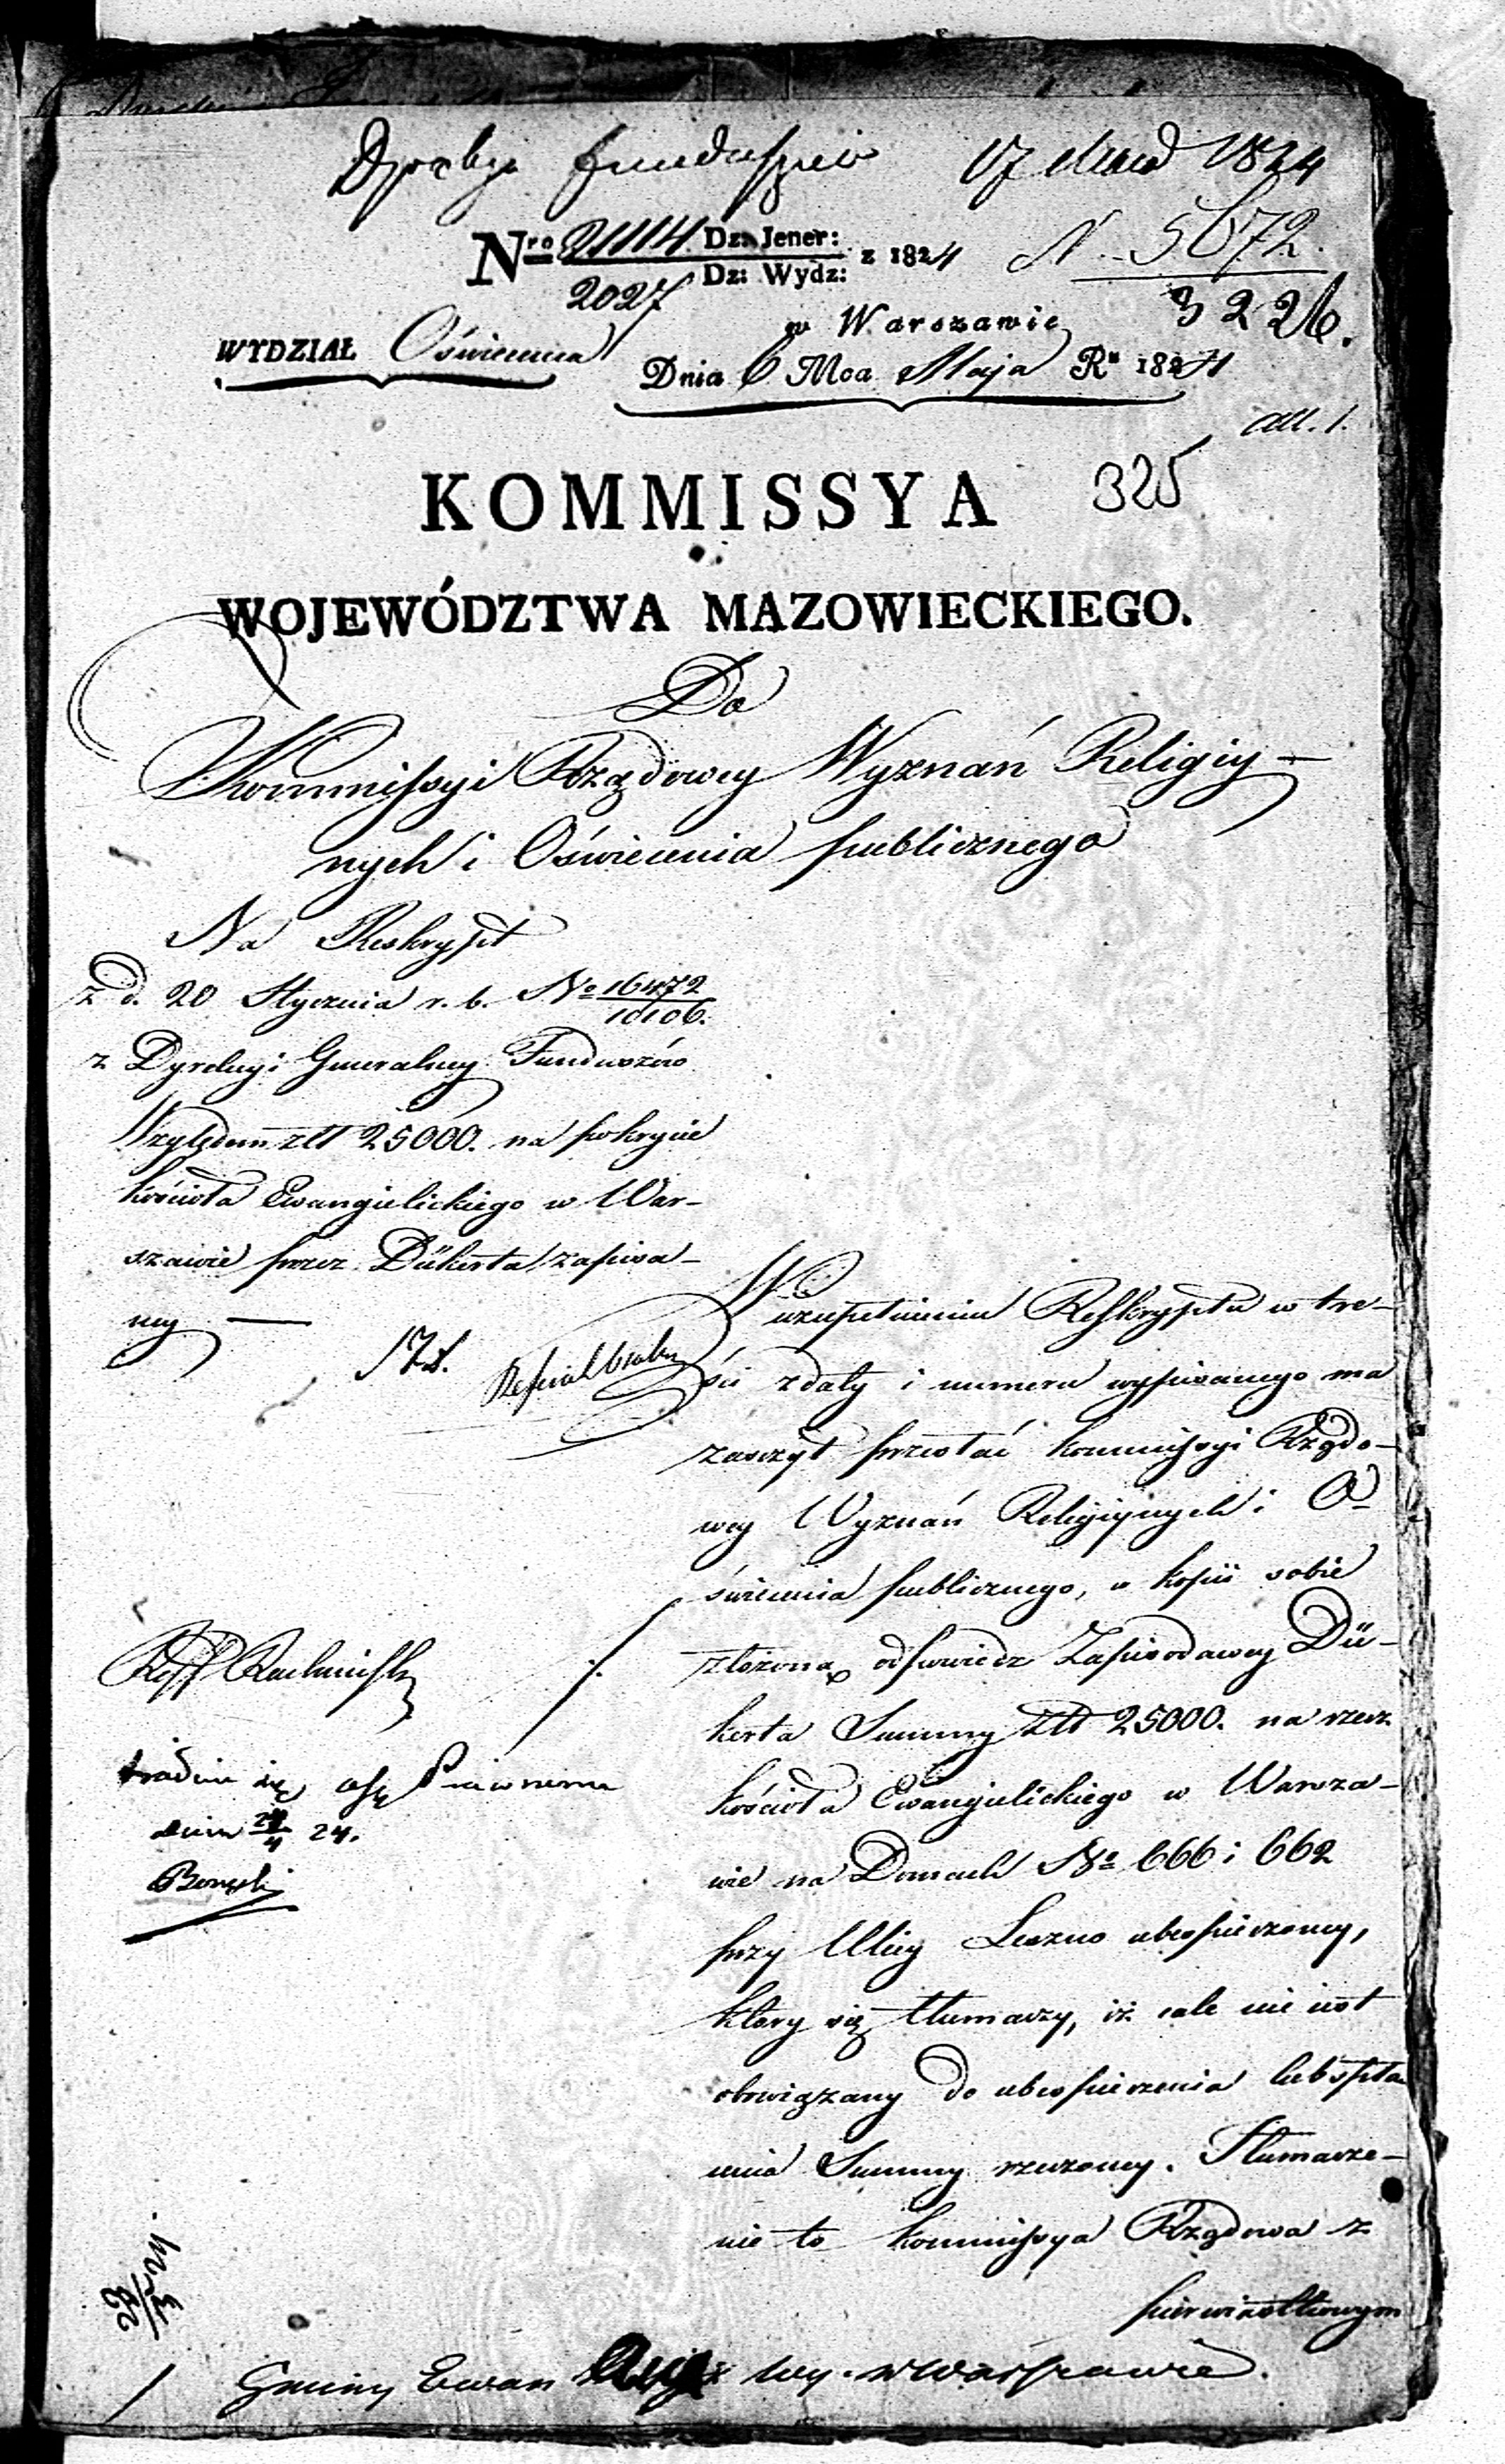 17 Maja 1824
Nro 21114 Dz: Jener: z 1824 N. 5672.
2027 Dz: Wydz: 3226.
w Warszawie
WYDZIAŁ Oświecenia
Dnia 6 Mca Maja Ru 1824
all. 1.
325
KOMMISSYA
WOJEWÓDZTWA MAZOWIECKIEGO.
Do
Kommissyi Rządowey Wyznań Religiy-
nych i Oświecenia publicznego
Na Reskrypt
z d. 20 Stycznia r. b. No 16472
10106.
z Dyrekcyi Generalney Funduszów
Względem złł 25000. na pokrycie
kościoła Ewangielickiego w War-
szawie przez Dükerta zapisa-
ney —
W uzupełnieniu Reskryptu w tre-
ści z daty i numeru wypisanego ma
zaszczyt przesłać Kommissyi Rządo-
wey Wyznań Religiynych i O-
świecenia publicznego, w kopii sobie
złożoną odpowiedz Zapisodawcy Dü-
kerta Summy złł 25000. na rzecz
kościoła Ewangielickiego w Warsza-
wie na Domach No 666 i 662
przy Ulicy Leszno ubespieczoney,
ktory się tłumaczy, iż cale nie iest
obowiązany do ubespieczenia lub spła-
cenia Summy rzeczoney. Tłumacze-
nie to Kommissya Rządowa z
pierwiastkowym
dnia 24.
Gminy Ewan w Warszawie.